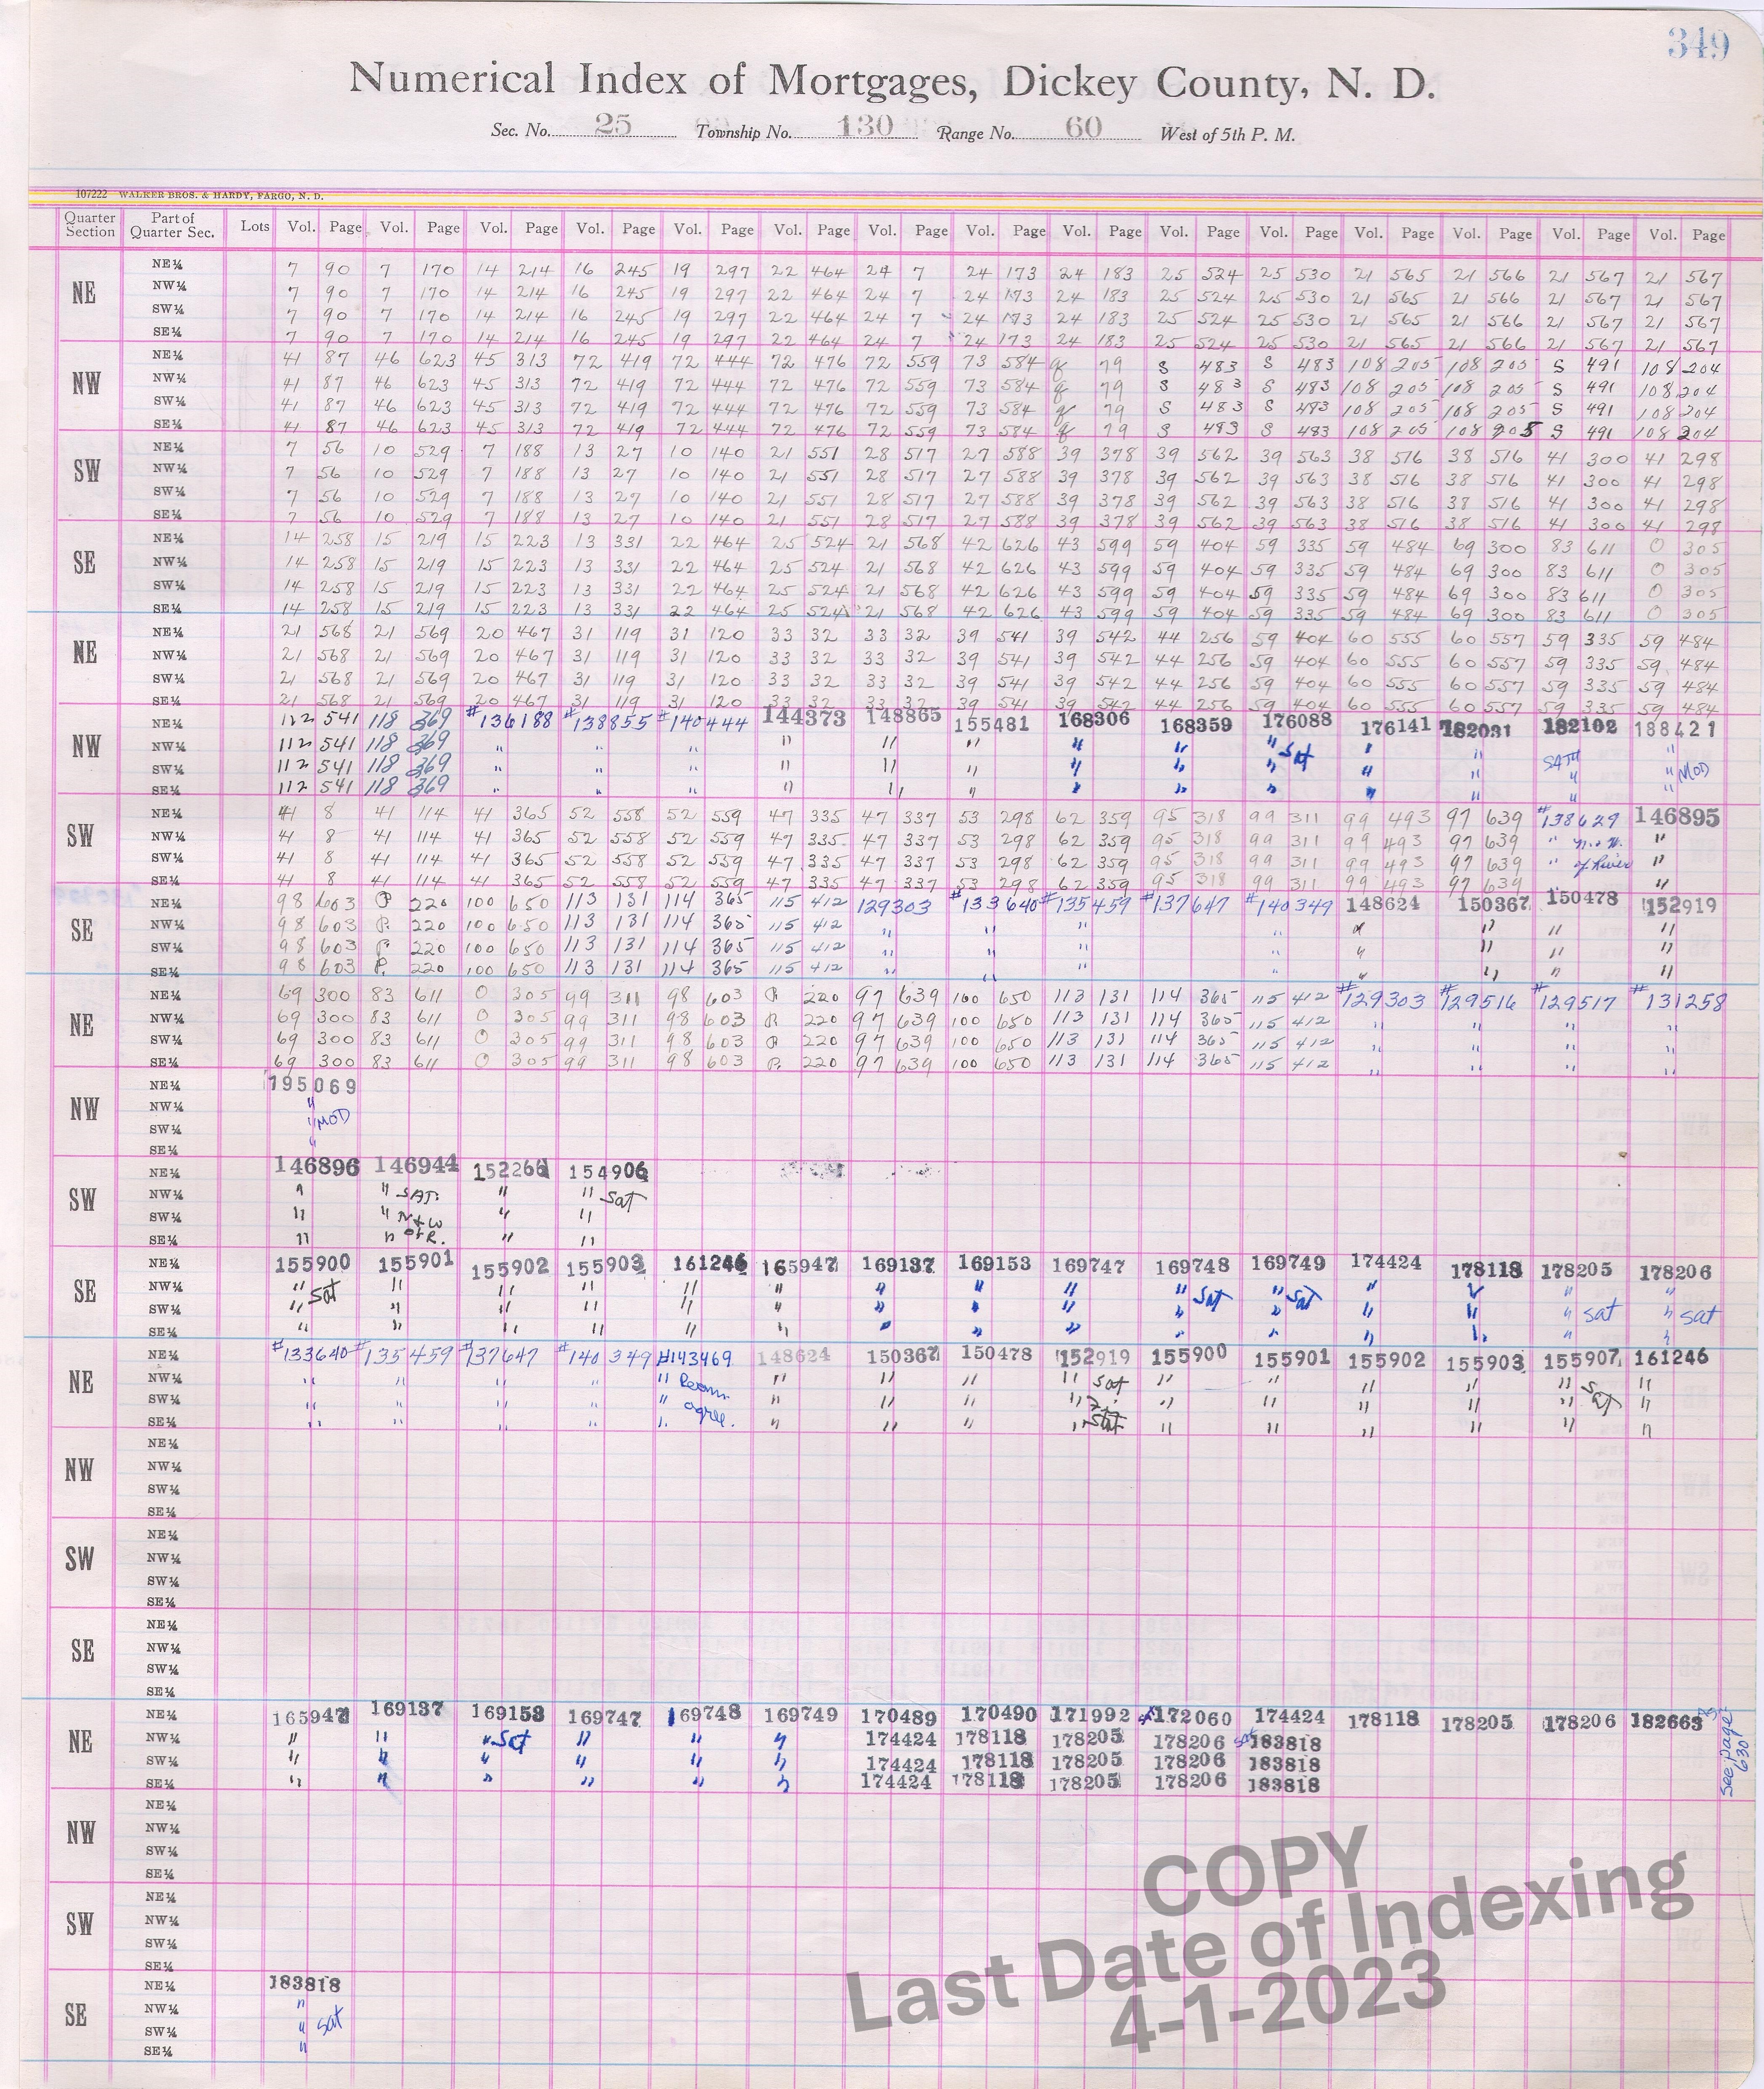 349
Numerical Index of Mortgages, Dickey County, N. D.
Sec. No. 25 Township No. 130 Range No. 60 West of 5th P. M.
107222 WALKER BROS. & HARDY, FARGO, N. D.
Quarter Section Part of Quarter Sec. Lots Vol. Page Vol. Page Vol. Page Vol. Page Vol. Page Vol. Page Vol. Page Vol. Page Vol. Page Vol. Page Vol. Page Vol. Page Vol. Page Vol. Page Vol. Page
NE
NE¼ 7 90 7 170 14 214 16 245 19 297 22 464 24 7 24 173 24 183 25 524 25 530 21 565 21 566 21 567 21 567
NW¼ 7 90 7 170 14 214 16 245 19 297 22 464 24 7 24 173 24 183 25 524 25 530 21 565 21 566 21 567 21 567
SW¼ 7 90 7 170 14 214 16 245 19 297 22 464 24 7 24 173 24 183 25 524 25 530 21 565 21 566 21 567 21 567
SE¼ 7 90 7 170 14 214 16 245 19 297 22 464 24 7 24 173 24 183 25 524 25 530 21 565 21 566 21 567 21 567
NW
NE¼ 41 87 46 623 45 313 72 419 72 444 72 476 72 559 73 584 79 S 483 S 483 108 205 108 205 S 491 108 204
NW¼ 41 87 46 623 45 313 72 419 72 444 72 476 72 559 73 584 79 S 483 S 483 108 205 108 205 S 491 108 204
SW¼ 41 87 46 623 45 313 72 419 72 444 72 476 72 559 73 584 79 S 483 S 483 108 205 108 205 S 491 108 204
SE¼ 41 87 46 623 45 313 72 419 72 444 72 476 72 559 73 584 79 S 483 S 483 108 205 108 205 S 491 108 204
SW
NE¼ 7 56 10 529 7 188 13 27 10 140 21 551 28 517 27 588 39 378 39 562 39 563 38 516 38 516 41 300 41 298
NW¼ 7 56 10 529 7 188 13 27 10 140 21 551 28 517 27 588 39 378 39 562 39 563 38 516 38 516 41 300 41 298
SW¼ 7 56 10 529 7 188 13 27 10 140 21 551 28 517 27 588 39 378 39 562 39 563 38 516 38 516 41 300 41 298
SE¼ 7 56 10 529 7 188 13 27 10 140 21 551 28 517 27 588 39 378 39 562 39 563 38 516 38 516 41 300 41 298
SE
NE¼ 14 258 15 219 15 223 13 331 22 464 25 524 21 568 42 626 43 599 59 404 59 335 59 484 69 300 83 611 O 305
NW¼ 14 258 15 219 15 223 13 331 22 464 25 524 21 568 42 626 43 599 59 404 59 335 59 484 69 300 83 611 O 305
SW¼ 14 258 15 219 15 223 13 331 22 464 25 524 21 568 42 626 43 599 59 404 59 335 59 484 69 300 83 611 O 305
SE¼ 14 258 15 219 15 223 13 331 22 464 25 524 21 568 42 626 43 599 59 404 59 335 59 484 69 300 83 611 O 305
NE
NE¼ 21 568 21 569 20 467 31 119 31 120 33 32 33 32 39 541 39 542 44 256 59 404 60 555 60 557 59 335 59 484
NW¼ 21 568 21 569 20 467 31 119 31 120 33 32 33 32 39 541 39 542 44 256 59 404 60 555 60 557 59 335 59 484
SW¼ 21 568 21 569 20 467 31 119 31 120 33 32 33 32 39 541 39 542 44 256 59 404 60 555 60 557 59 335 59 484
SE¼ 21 568 21 569 20 467 31 119 31 120 33 32 33 32 39 541 39 542 44 256 59 404 60 555 60 557 59 335 59 484
NW
NE¼ 112 541 118 369 #136188 #138855 #140444 144373 148865 155481 168306 168359 176088 176141 182031 182102 188421
NW¼ 112 541 118 369 " " " " " " " " " Sat " " SATD "
SW¼ 112 541 118 369 " " " " " " " " " " " " " MOD
SE¼ 112 541 118 369 " " " " " " " " " " " " "
SW
NE¼ 41 8 41 114 41 365 52 558 52 559 47 335 47 337 53 298 62 359 95 318 99 311 99 493 97 639 #138629 146895
NW¼ 41 8 41 114 41 365 52 558 52 559 47 335 47 337 53 298 62 359 95 318 99 311 99 493 97 639 " n.&W. "
SW¼ 41 8 41 114 41 365 52 558 52 559 47 335 47 337 53 298 62 359 95 318 99 311 99 493 97 639 " of River "
SE¼ 41 8 41 114 41 365 52 558 52 559 47 335 47 337 53 298 62 359 95 318 99 311 99 493 97 639 "
SE
NE¼ 98 603 P 220 100 650 113 131 114 365 115 412 129303 #133640 #135459 #137647 #140349 148624 150367 150478 152919
NW¼ 98 603 P. 220 100 650 113 131 114 365 115 412 " " " " " " " "
SW¼ 98 603 P 220 100 650 113 131 114 365 115 412 " " " " " " "
SE¼ 98 603 P. 220 100 650 113 131 114 365 115 412 " " " " " " " "
NE
NE¼ 69 300 83 611 O 305 99 311 98 603 P 220 97 639 100 650 113 131 114 365 115 412 #129303 #129516 #129517 #131258
NW¼ 69 300 83 611 O 305 99 311 98 603 P 220 97 639 100 650 113 131 114 365 115 412 " " " "
SW¼ 69 300 83 611 O 305 99 311 98 603 P 220 97 639 100 650 113 131 114 365 115 412 " " " "
SE¼ 69 300 83 611 O 305 99 311 98 603 P. 220 97 639 100 650 113 131 114 365 115 412 " " " "
NW
NE¼ 195069
NW¼ "
SW¼ " MOD
SE¼ "
SW
NE¼ 146896 146944 152266 154906
NW¼ " " SAT. " " Sat
SW¼ " " N+W " "
SE¼ " " of R. " "
SE
NE¼ 155900 155901 155902 155903 161246 165947 169137 169153 169747 169748 169749 174424 178118 178205 178206
NW¼ " Sat " " " " " " " " " Sat " Sat " " " "
SW¼ " " " " " " " " " " " " " " sat " sat
SE¼ " " " " " " " " " " " " " " "
NE
NE¼ #133640 #135459 #137647 #140349 #143469 148624 150367 150478 152919 155900 155901 155902 155903 155907 161246
NW¼ " " " " " Room. " " " " Sat " " " " " Sat "
SW¼ " " " " " agree. " " " " " " " " " "
SE¼ " " " " " " " " " Stat " " " " " "
NW
NE¼
NW¼
SW¼
SE¼
SW
NE¼
NW¼
SW¼
SE¼
SE
NE¼
NW¼
SW¼
SE¼
NE
NE¼ 165947 169137 169153 169747 169748 169749 170489 170490 171992 172060 174424 178118 178205 178206 182663
NW¼ " " " Sat " " " 174424 178118 178205 178206 183818
SW¼ " " " " " " 174424 178118 178205 178206 183818
SE¼ " " " " " " 174424 178118 178205 178206 183818
See page 630
NW
NE¼
NW¼
SW¼
SE¼
SW
NE¼
NW¼
SW¼
SE¼
SE
NE¼ 183818
NW¼ "
SW¼ " Sat
SE¼ "
COPY
Last Date of Indexing
4-1-2023